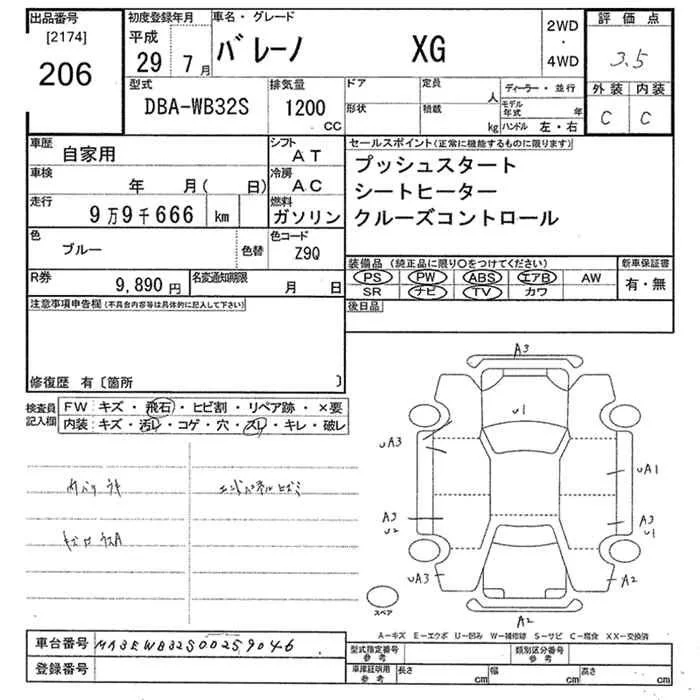 出品番号
[2174]
206
初度登録年月
平成
29 7月
車名・グレード
バレーノ XG
2WD
・
4WD
評価点
3.5
外装 内装
C C
型式
DBA-WB32S
排気量
1200
CC
ドア
形状
定員
人
積載
kg
ディーラー・並行
モデル年式 年
ハンドル 左・右
車歴
自家用
シフト
AT
車検
年 月( 日)
冷房
AC
走行
9万9千666 km
燃料
ガソリン
色
ブルー
色替
色コード
Z9Q
R券
9,890 円
名変通知期限
月 日
セールスポイント(正常に機能するものに限ります)
プッシュスタート
シートヒーター
クルーズコントロール
装備品 (純正品に限り○をつけてください)
PS PW ABS エアB AW
SR ナビ TV カワ
新車保証書
有・無
後日品
注意事項申告欄(不具合内容等は具体的に記入して下さい)
修復歴 有〔箇所 〕
検査員
記入欄
FW キズ・飛石・ヒビ割・リペア跡・×要
内装 キズ・汚レ・コゲ・穴・スレ・キレ・破レ
エンドパネルヒズミ
A3
U1
UA3
UA1
A3
U2
A3
U1
UA3
A2
A2
スペア
A-キズ E-エクボ U-凹み W-補修跡 S-サビ C-腐食 XX-交換済
車台番号
MA3EWB32S00259046
登録番号
型式指定番号
参考
類別区分番号
参考
車庫証明用
参考
長さ cm 幅 cm 高さ cm